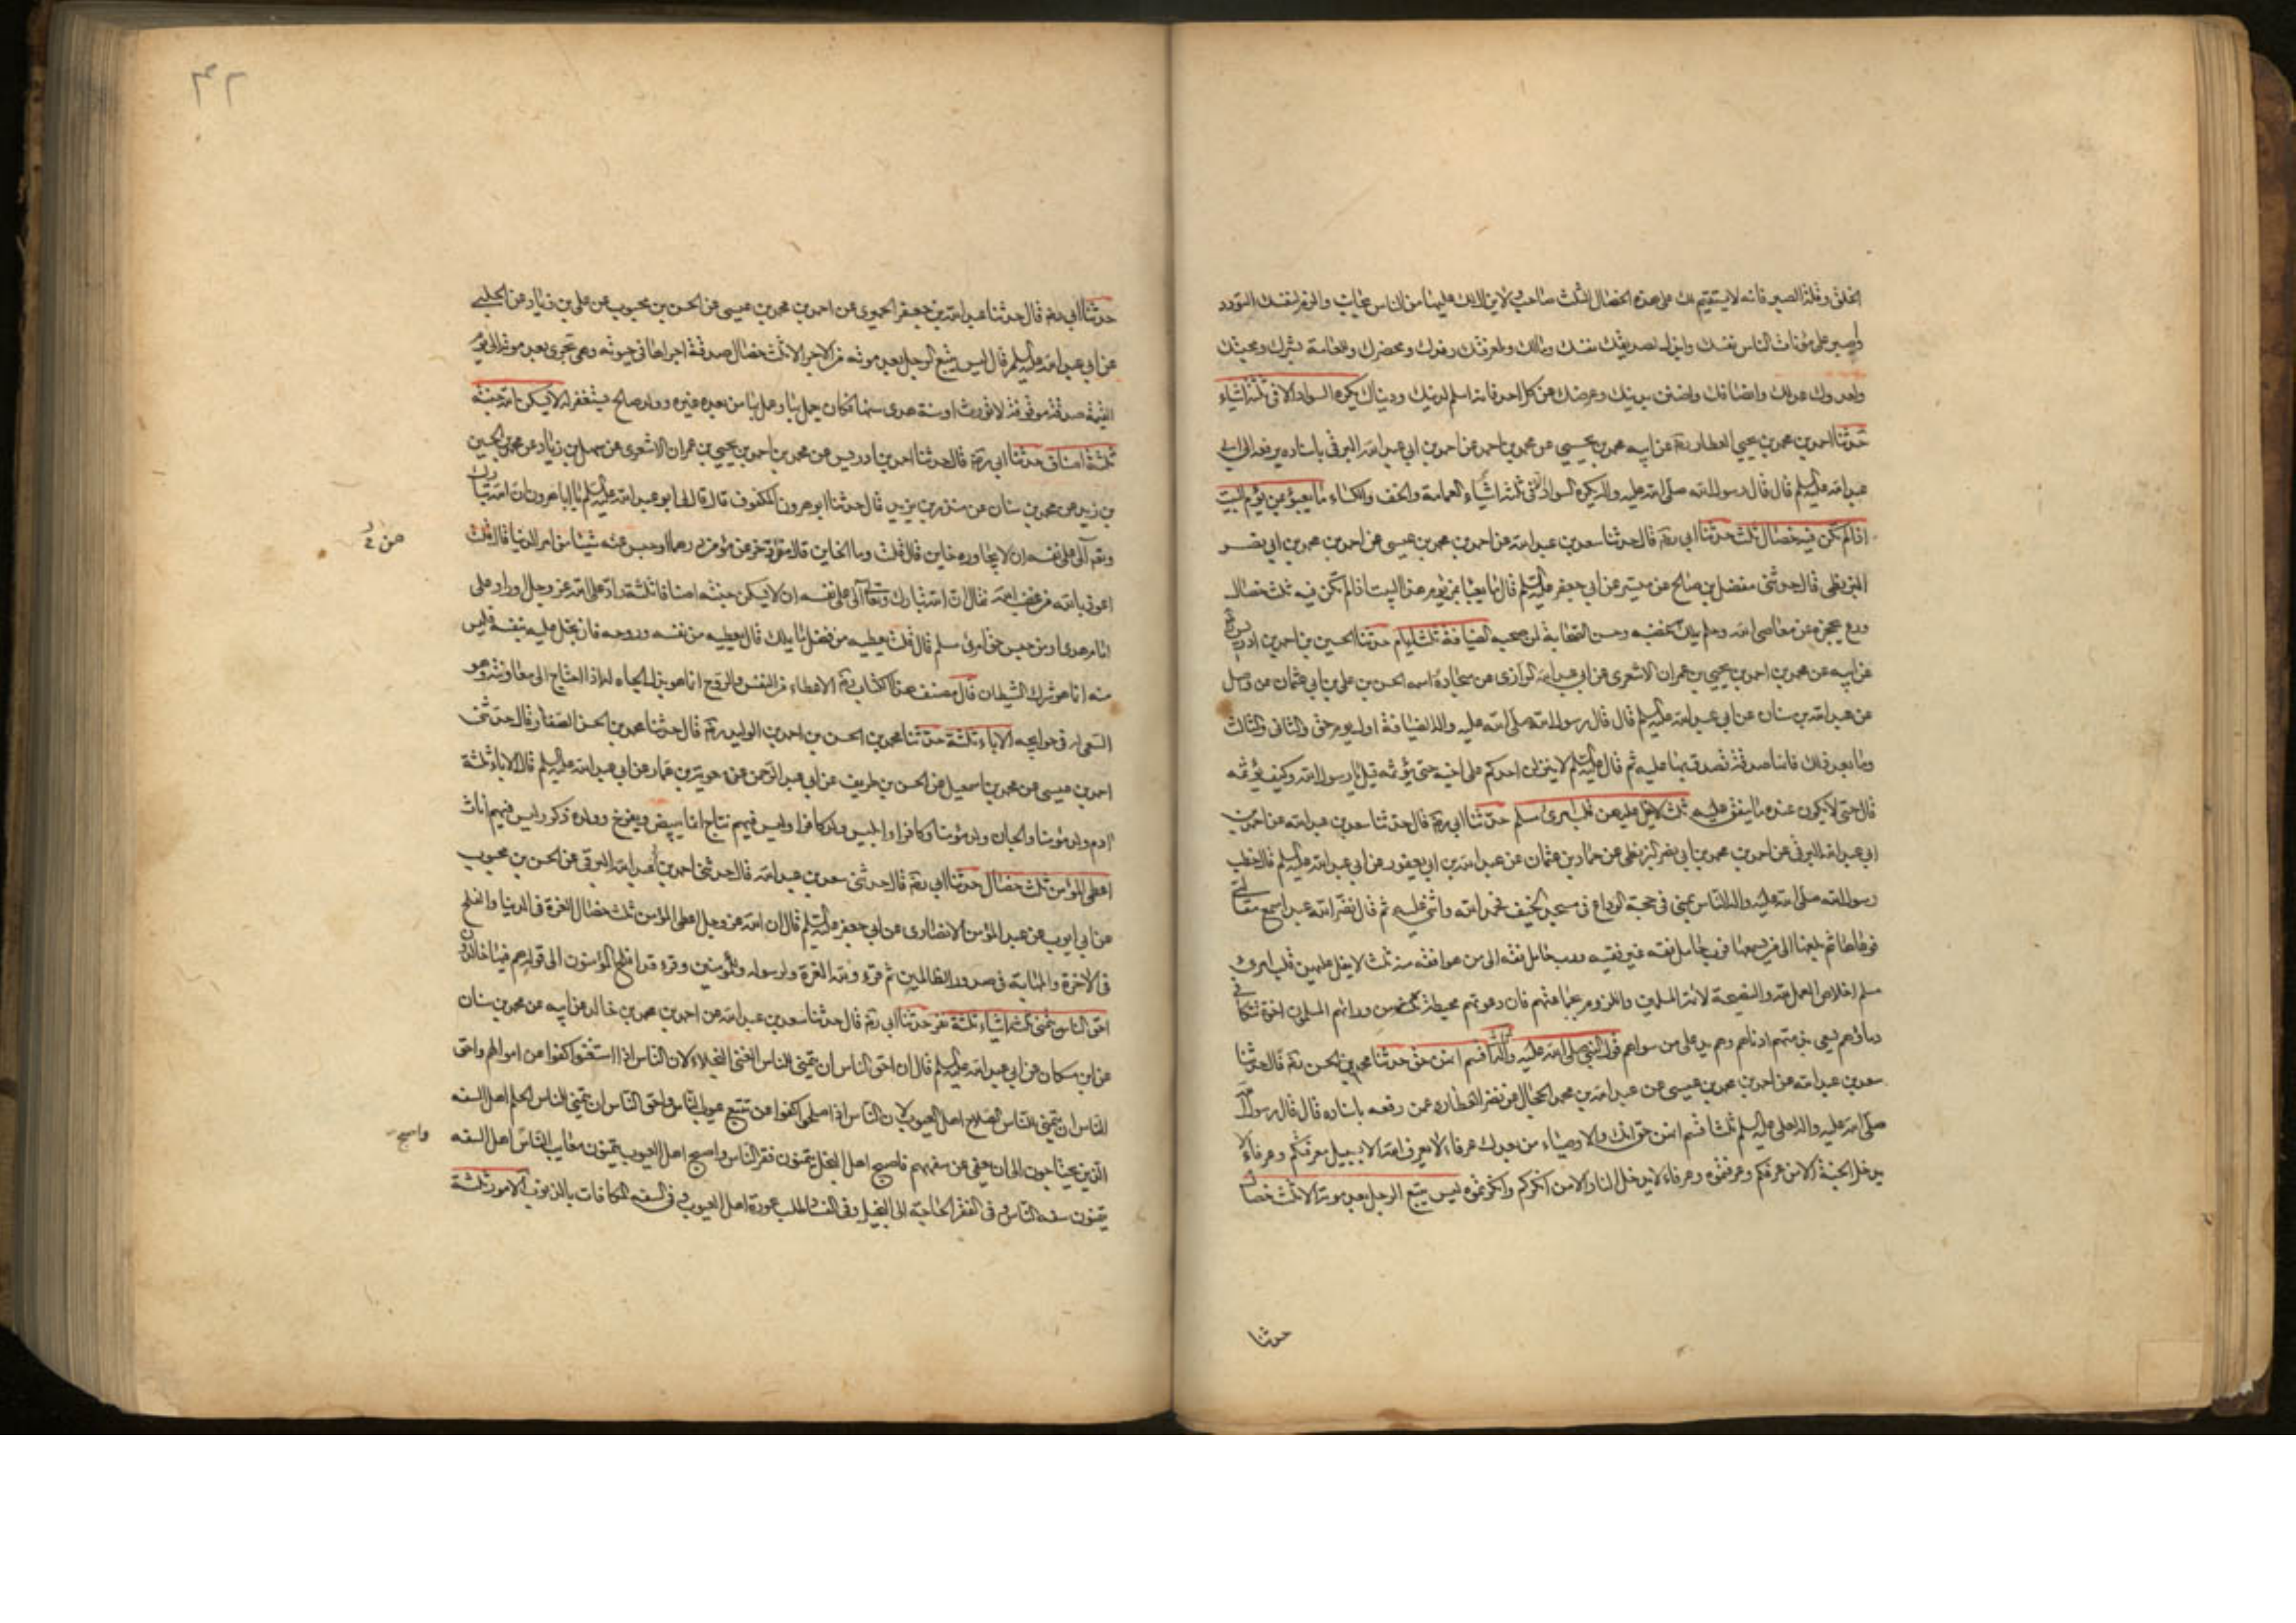 الخلق وقلة الصبر فانه لا يستقيم لك على هذه الخصال الثلث صاحب ولا يزال لك عليها من الناس مجانب والزم نفسك التودد
واصبر على مؤنات الناس نفسك وابذل لصديقك نفسك ومالك ولمعرفتك رفدك ومحضرك وللعامة بشرك ومحبتك
ولعدوك عدلك وانصافك واضنن بدينك وعرضك عن كل احد فانه اسلم لدينك ودنياك يكره السواد الا في ثلثة اشياء
حدثنا احمد بن محمد بن يحيى العطار ره عن ابيه محمد بن يحيى عن محمد بن احمد عن احمد بن ابي عبد الله البرقي باسناده يرفعه الى ابي
عبد الله عليه السلم قال قال رسول الله صلى الله عليه واله يكره السواد الا في ثلثة اشياء العمامة والخف والكساء ما يعبؤ بمن يؤم البيت
اذا لم تكن فيه خصال ثلث حدثنا ابي ره قال حدثنا سعد بن عبد الله عن احمد بن محمد بن عيسى عن احمد بن محمد بن ابي نصر
البزنطي قال حدثني مفضل بن صالح عن ميسر عن ابي جعفر عليه السلم قال ما يعبا بمن يؤم هذا البيت اذا لم تكن فيه ثلث خصال
ورع يحجزه عن معاصي الله وحلم يملك به غضبه وحسن الصحابة لمن صحبه الضيافة ثلثة ايام حدثنا الحسين بن احمد بن ادريس
عن ابيه عن محمد بن احمد بن يحيى بن عمران الاشعري عن ابي عبد الله الرازي عن سجادة اسمه الحسن بن علي بن ابي عثمان عن واصل
عن عبد الله بن سنان عن ابي عبد الله عليه السلم قال قال رسول الله صلى الله عليه واله الضيافة اول يوم حق والثاني والثالث
وما بعد ذلك فانها صدقة تصدق بها عليه ثم قال عليه السلم لا ينزلن احدكم على اخيه حتى يؤثمه قيل يا رسول الله وكيف يؤثمه
قال حتى لا يكون عنده ما ينفق عليه ثلث لا يغل عليهن قلب امرئ مسلم حدثنا ابي ره قال حدثنا سعد بن عبد الله عن احمد بن
ابي عبد الله البرقي عن احمد بن محمد بن ابي نصر البزنطي عن حماد بن عثمان عن عبد الله بن ابي يعفور عن ابي عبد الله عليه السلم قال خطب
رسول الله صلى الله عليه واله الناس بمنى في حجة الوداع في مسجد الخيف فحمد الله واثنى عليه ثم قال نضر الله عبدا سمع مقالتي
فوعاها ثم بلغها الى من لم يسمعها فرب حامل فقه غير فقيه ورب حامل فقه الى من هو افقه منه ثلث لا يغل عليهن قلب امرئ
مسلم اخلاص العمل لله والنصيحة لائمة المسلمين واللزوم لجماعتهم فان دعوتهم محيطة من ورائهم المسلمون اخوة تتكافى
دماؤهم يسعى بذمتهم ادناهم وهم يد على من سواهم قول النبي صلى الله عليه واله ثلث اقسم انهن حق حدثنا محمد بن الحسن ره قال حدثنا
سعد بن عبد الله عن احمد بن محمد بن عيسى عن عبد الله بن محمد الحجال عن نصر العطار عمن رفعه باسناده قال قال رسول الله
صلى الله عليه واله لعلي عليه السلم ثلثا اقسم انهن حق انك والاوصياء من بعدك عرفاء لا يعرف الله الا بسبيل معرفتكم وعرفاء لا
يدخل الجنة الا من عرفكم وعرفتموه وعرفاء لا يدخل النار الا من انكركم وانكرتموه ليس يتبع الرجل بعد موته الا ثلث خصال
حدثنا
حدثنا ابي ره قال حدثنا عبد الله بن جعفر الحميري عن احمد بن محمد بن عيسى عن الحسن بن محبوب عن علي بن رئاب عن الحلبي
عن ابي عبد الله عليه السلم قال ليس يتبع الرجل بعد موته من الاجر الا ثلث خصال صدقة اجراها في حيوته وهي تجري بعد موته الى يوم
القيمة صدقة موقوفة لا تورث او سنة هدى سنها فكان يعمل بها وعمل بها من بعده غيره وولد صالح يستغفر له لا يسكن الله جنته
ثلثة اصناف حدثنا ابي ره قال حدثنا احمد بن ادريس عن محمد بن احمد بن يحيى بن عمران الاشعري عن سهل بن زياد عن محمد بن الحسين
بن زيد عن محمد بن سنان عن منذر بن يزيد قال حدثنا ابو هرون المكفوف قال قال لي ابو عبد الله عليه السلم يا ابا هرون ان الله تبارك
وتعالى آلى على نفسه ان لا يجاوره خاين قال قلت وما الخاين قال من ادخر عن مؤمن درهما او حبس عنه شيئا من امر الدنيا قال قلت
اعوذ بالله من غضب الله فقال ان الله تبارك وتعالى آلى على نفسه ان لا يسكن جنته اصنافا ثلثة راد على الله عز وجل او راد على
امام هدى او من حبس حق امرئ مسلم قال قلت يعطيه من فضل ما يملك قال يعطيه من نفسه وروحه فان بخل عليه بنفسه فليس
منه انما هو شرك الشيطان قال مصنف هذا الكتاب ره الاعطاء من النفس والروح انما هو بذل الجاه له اذا احتاج الى معاونته وهو
السعي له في حوايجه الاباء ثلثة حدثنا محمد بن الحسن بن احمد بن الوليد ره قال حدثنا محمد بن الحسن الصفار قال حدثني
احمد بن عيسى عن محمد بن اسمعيل عن الحسن بن ظريف عن ابي عبد الرحمن عن معوية بن عمار عن ابي عبد الله عليه السلم قال الاباء ثلثة
ادم ولد مؤمنا والجان ولد مؤمنا وكافرا وابليس ولد كافرا وليس فيهم نتاج انما يبيض ويفرخ وولده ذكور ليس فيهم اناث
اعطى المؤمن ثلث خصال حدثنا ابي ره قال حدثني سعد بن عبد الله قال حدثني احمد بن ابي عبد الله البرقي عن الحسن بن محبوب
عن ابي ايوب عن عبد المؤمن الانصاري عن ابي جعفر عليه السلم قال ان الله عز وجل اعطى المؤمن ثلث خصال العزة في الدنيا والفلح
في الاخرة والمهابة في صدور الظالمين ثم قرء ولله العزة ولرسوله وللمؤمنين وقرء قد افلح المؤمنون الى قوله هم فيها خالدون
احق الناس بتمنى ثلثة اشياء ثلثة نفر حدثنا ابي ره قال حدثنا سعد بن عبد الله عن احمد بن محمد بن خالد عن ابيه عن محمد بن سنان
عن ابن مسكان عن ابي عبد الله عليه السلم قال ان احق الناس ان يتمنى للناس الغنى البخلاء لان الناس اذا استغنوا كفوا عن اموالهم واحق
الناس ان يتمنى للناس الصلاح اهل العيوب لان الناس اذا صلحوا كفوا عن تتبع عيوب الناس واحق الناس ان يتمنى للناس الحلم اهل السفه
الذين يحتاجون الى ان يعفى عن سفههم فاصبح اهل البخل يتمنون فقر الناس واصبح اهل العيوب يتمنون معايب الناس اهل السفه
يتمنون سفه الناس وفي الفقر الحاجة الى البخيل وفي الفساد طلب عورة اهل العيوب وفي السفه المكافات بالذنوب الامور ثلثة
واصبح
٤٢